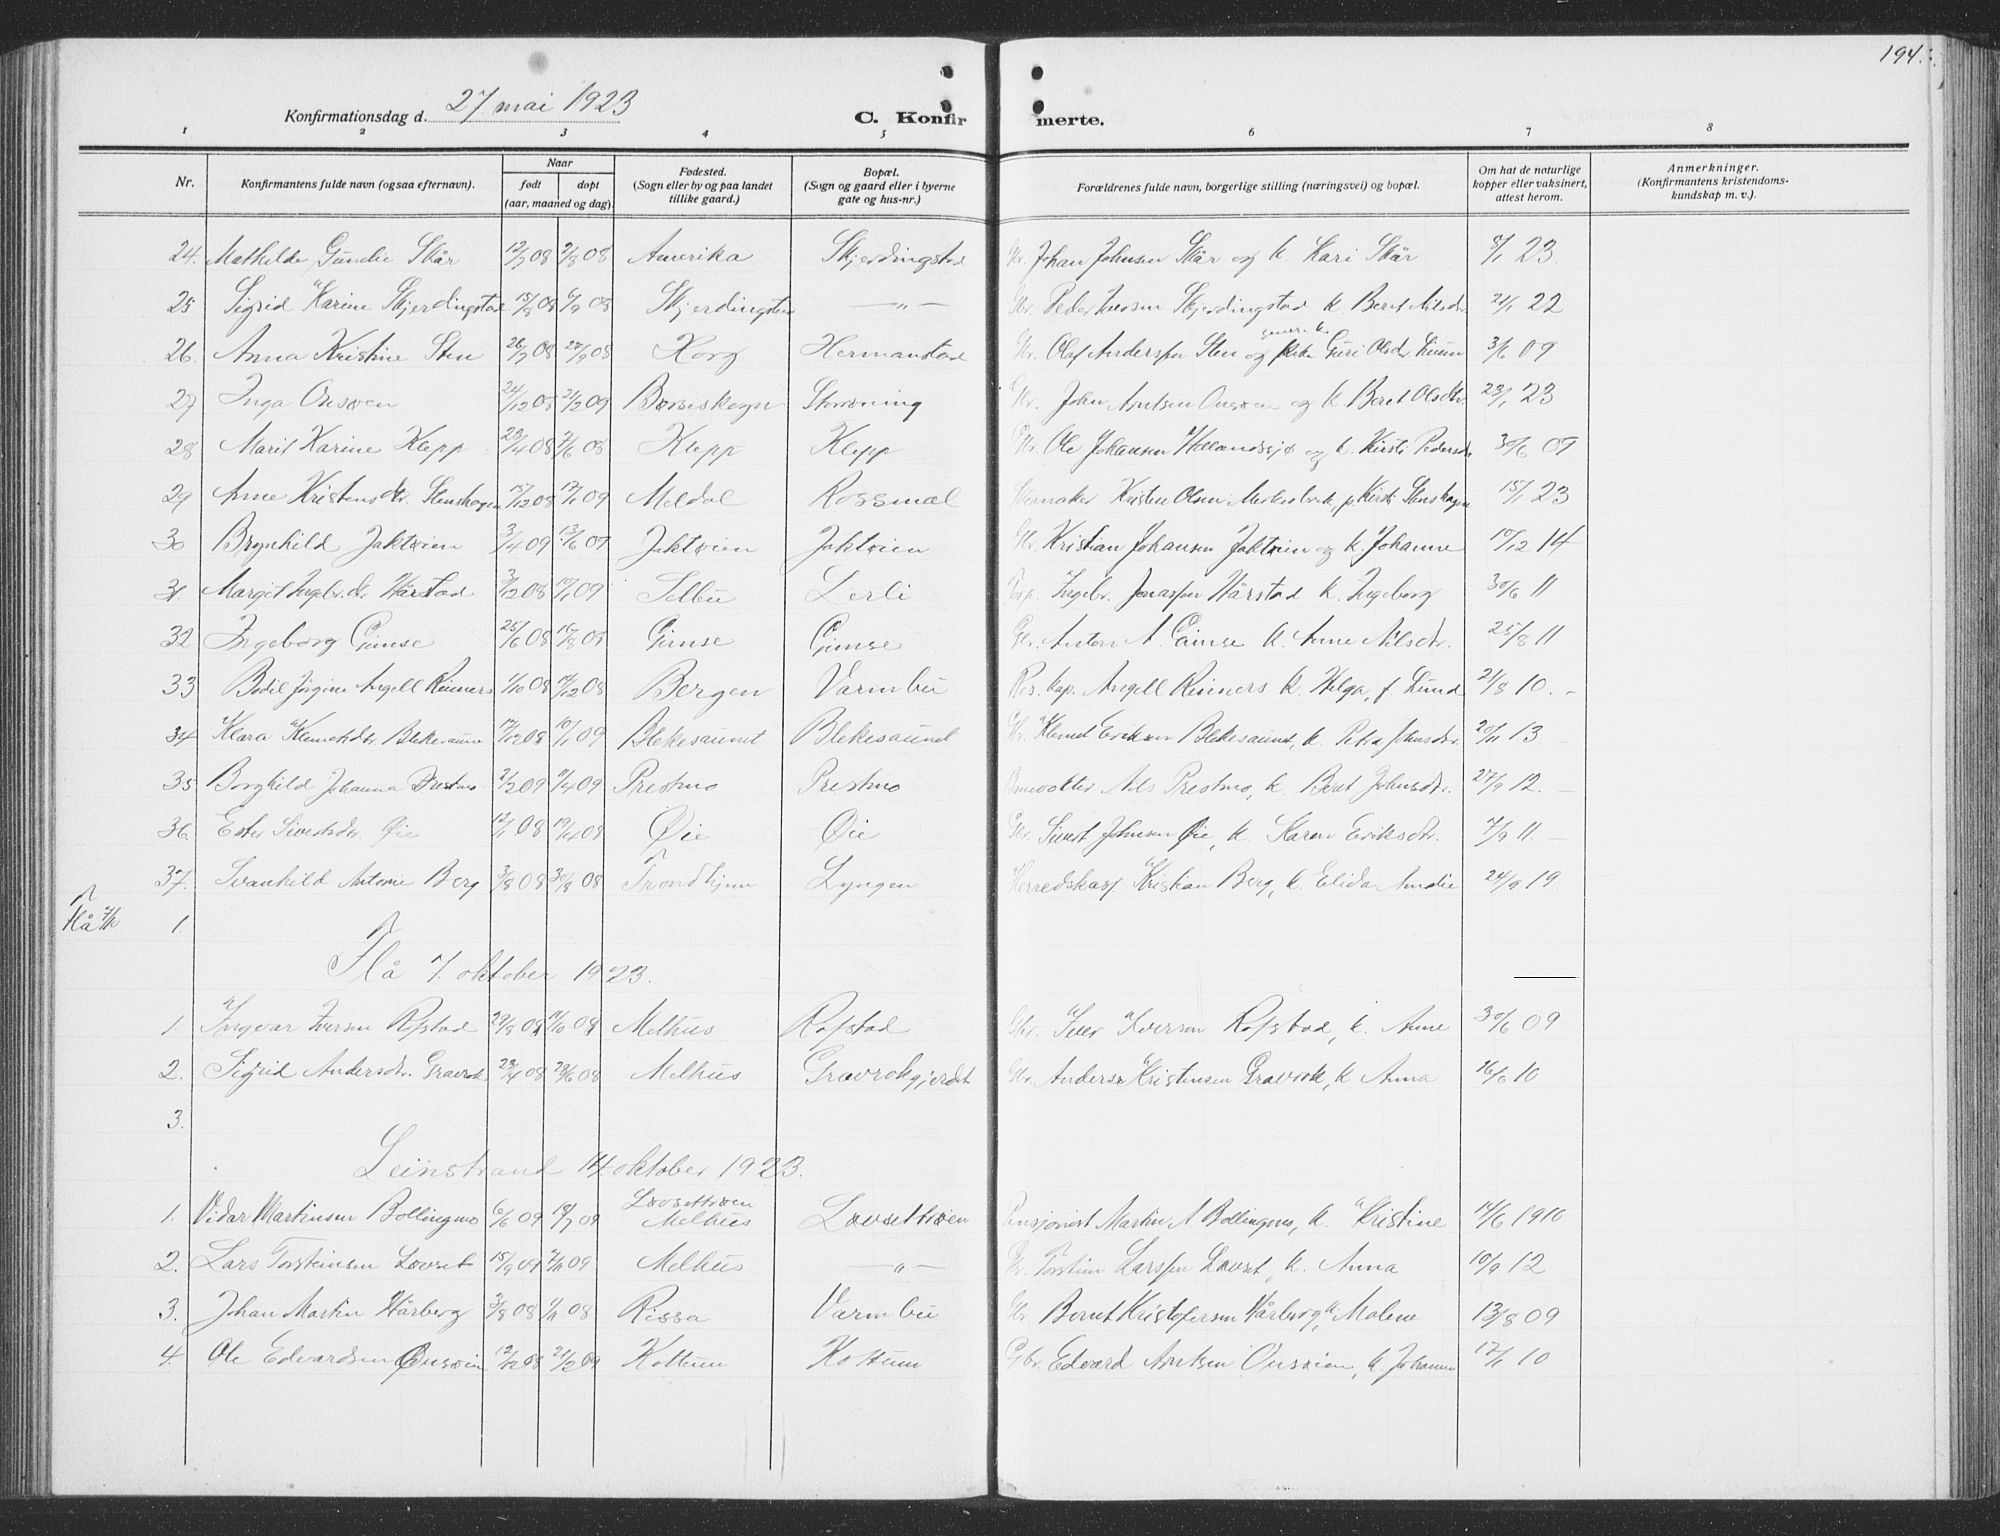 194.
Konfirmationsdag d. 27 mai 1923
C. Konfirmerte.
1 2 3 4 5 6 7 8
Nr. Konfirmantens fulde navn (ogsaa efternavn). Naar født døpt (aar, maaned og dag). Fødested. (Sogn eller by og paa landet tillike gaard.) Bopæl. (Sogn og gaard eller i byerne gate og hus-nr.) Forældrenes fulde navn, borgerlige stilling (næringsvei) og bopæl. Om hat de naturlige kopper eller vaksinert, attest herom. Anmerkninger. (Konfirmantens kristendoms-kundskap m. v.).
24. Mathilde Gundie Skår 12/7 08 2/8 08 Amerika Skjerdingstad Johan Johnsen Skår og k. Kari Skår 8/1 23.
25 Sigrid Karine Skjerdingstad 15/8 08 6/9 08 Skjerdingstad — " — Peder Skjerdingstad k. Beret Nilsdr. 21/1 22
26. Anna Kristine Sten 26/7 08 27/9 08 Horg Hermanstad Olaf Anderssen Sten og senere k. Guri Olsdr. 3/6 09
27 Inga Onsøen 24/12 08 21/2 09 Børseskogn Skrøning John Arntsen Onsøen og k. Beret Olsdtr. 23/1 23
28 Marit Karine Klepp 23/4 08 7/6 08 Klepp Klepp Ole Johansen Hollandsjø og k. Kirsti Pedersdr. 30/6 09
29 Anne Kristensdtr. Stenshagen 15/12 08 17/1 09 Meldal Rossmæl Kristen Olsen p. Kirsti Stenshagen 15/1 23
30 Brynhild Jaktøien 3/4 09 13/6 09 Jaktøien Jaktøien Kristian Johansen Jaktøien og k. Johanne 10/12 14
31. Margit Ingebr.dr. Hårstad 3/12 08 10/1 09 Selbu Lerli Ingebr. Jonassen Hårstad k. Ingeborg 30/6 11
32 Ingeborg Gimse 25/6 08 16/8 08 Gimse Gimse Anton A. Gimse k. Anne Nilsdtr. 25/8 11
33 Bodil Jørgine Angell Rinners 1/10 08 Bergen Varmbu Res. kap. Angell Rinners k. Helga, f. Lund 21/8 10. –
34 Klara Klemetsdtr. Blekesaune 17/12 08 10/1 09 Blekesaunet Blekesaunet Klemet Eriksen Blekesaunet, k. Petra Johnsdr. 20/11 13 –
35 Borghild Johanna Prestmo 2/2 09 11/4 09 Prestmo Prestmo Banevokter Nils Prestmo, k. Beret Johnsdr. 27/9 12. –
36 Ester Sivertsdr. Øie 12/1 08 19/4 08 Øie Øie Sivert Johnsen Øie, k. Karen Eriksdtr. 7/9 11. –
37. Svanhild Antonie Berg 3/8 08 30/8 08 Trondhjem Lyngen Herredskass. Kristian Berg, k. Elida Amalie 24/9 19.
Flå 7/10 1.
Flå 7. oktober 1923.
1. Ingvar Iversen Rofstad 29/8 08 Melhus Rofstad Gbr. Iver Iversen Rofstad, k. Anne 30/6 09
2. Sigrid Andersdr. Gravrok 23/4 08 28/6 08 Melhus Gravrokgjerdet Anders Kristensen Gravrok, k Anna 16/6 10
3.
Leinstrand 14 oktober 1923.
1. Vidar Martinsen Bollingmo 6/6 09 18/7 09 Løvsettrøen Melhus Løvsettrøen Pensjonist Martin A. Bollingmo, k. Kristine 14/6 1910
2. Lars Torsteinsen Løvset 15/9 09 7/11 09 Melhus — " — Torstein Larssen Løvset, k. Anna 10/9 12
3. Johan Martin Hårberg 3/8 08 1/11 08 Rissa Varmbu Bernt Kristofersen Hårberg, k. Malene 13/8 09
4. Ole Edvardsen Onsøien 12/12 08 21/2 09 Kottum Kottum Gbr. Edvard Arntsen Onsøien, k. Johanna 17/1 10